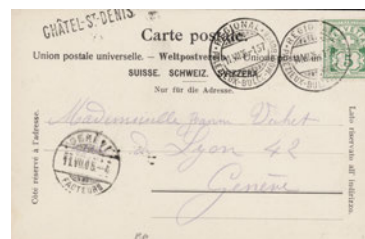 CHÂTEL-ST-DENIS
Carte postale.
Union postale universelle. — Weltpostverein. — Unione postale un
SUISSE. SCHWEIZ. SVIZZERA.
Nur für die Adresse.
Côté réservé à l'adresse.
Lato riservato all' indirizzo.
Mademoiselle
de Lyon 42
Genève
FACTEURS
5